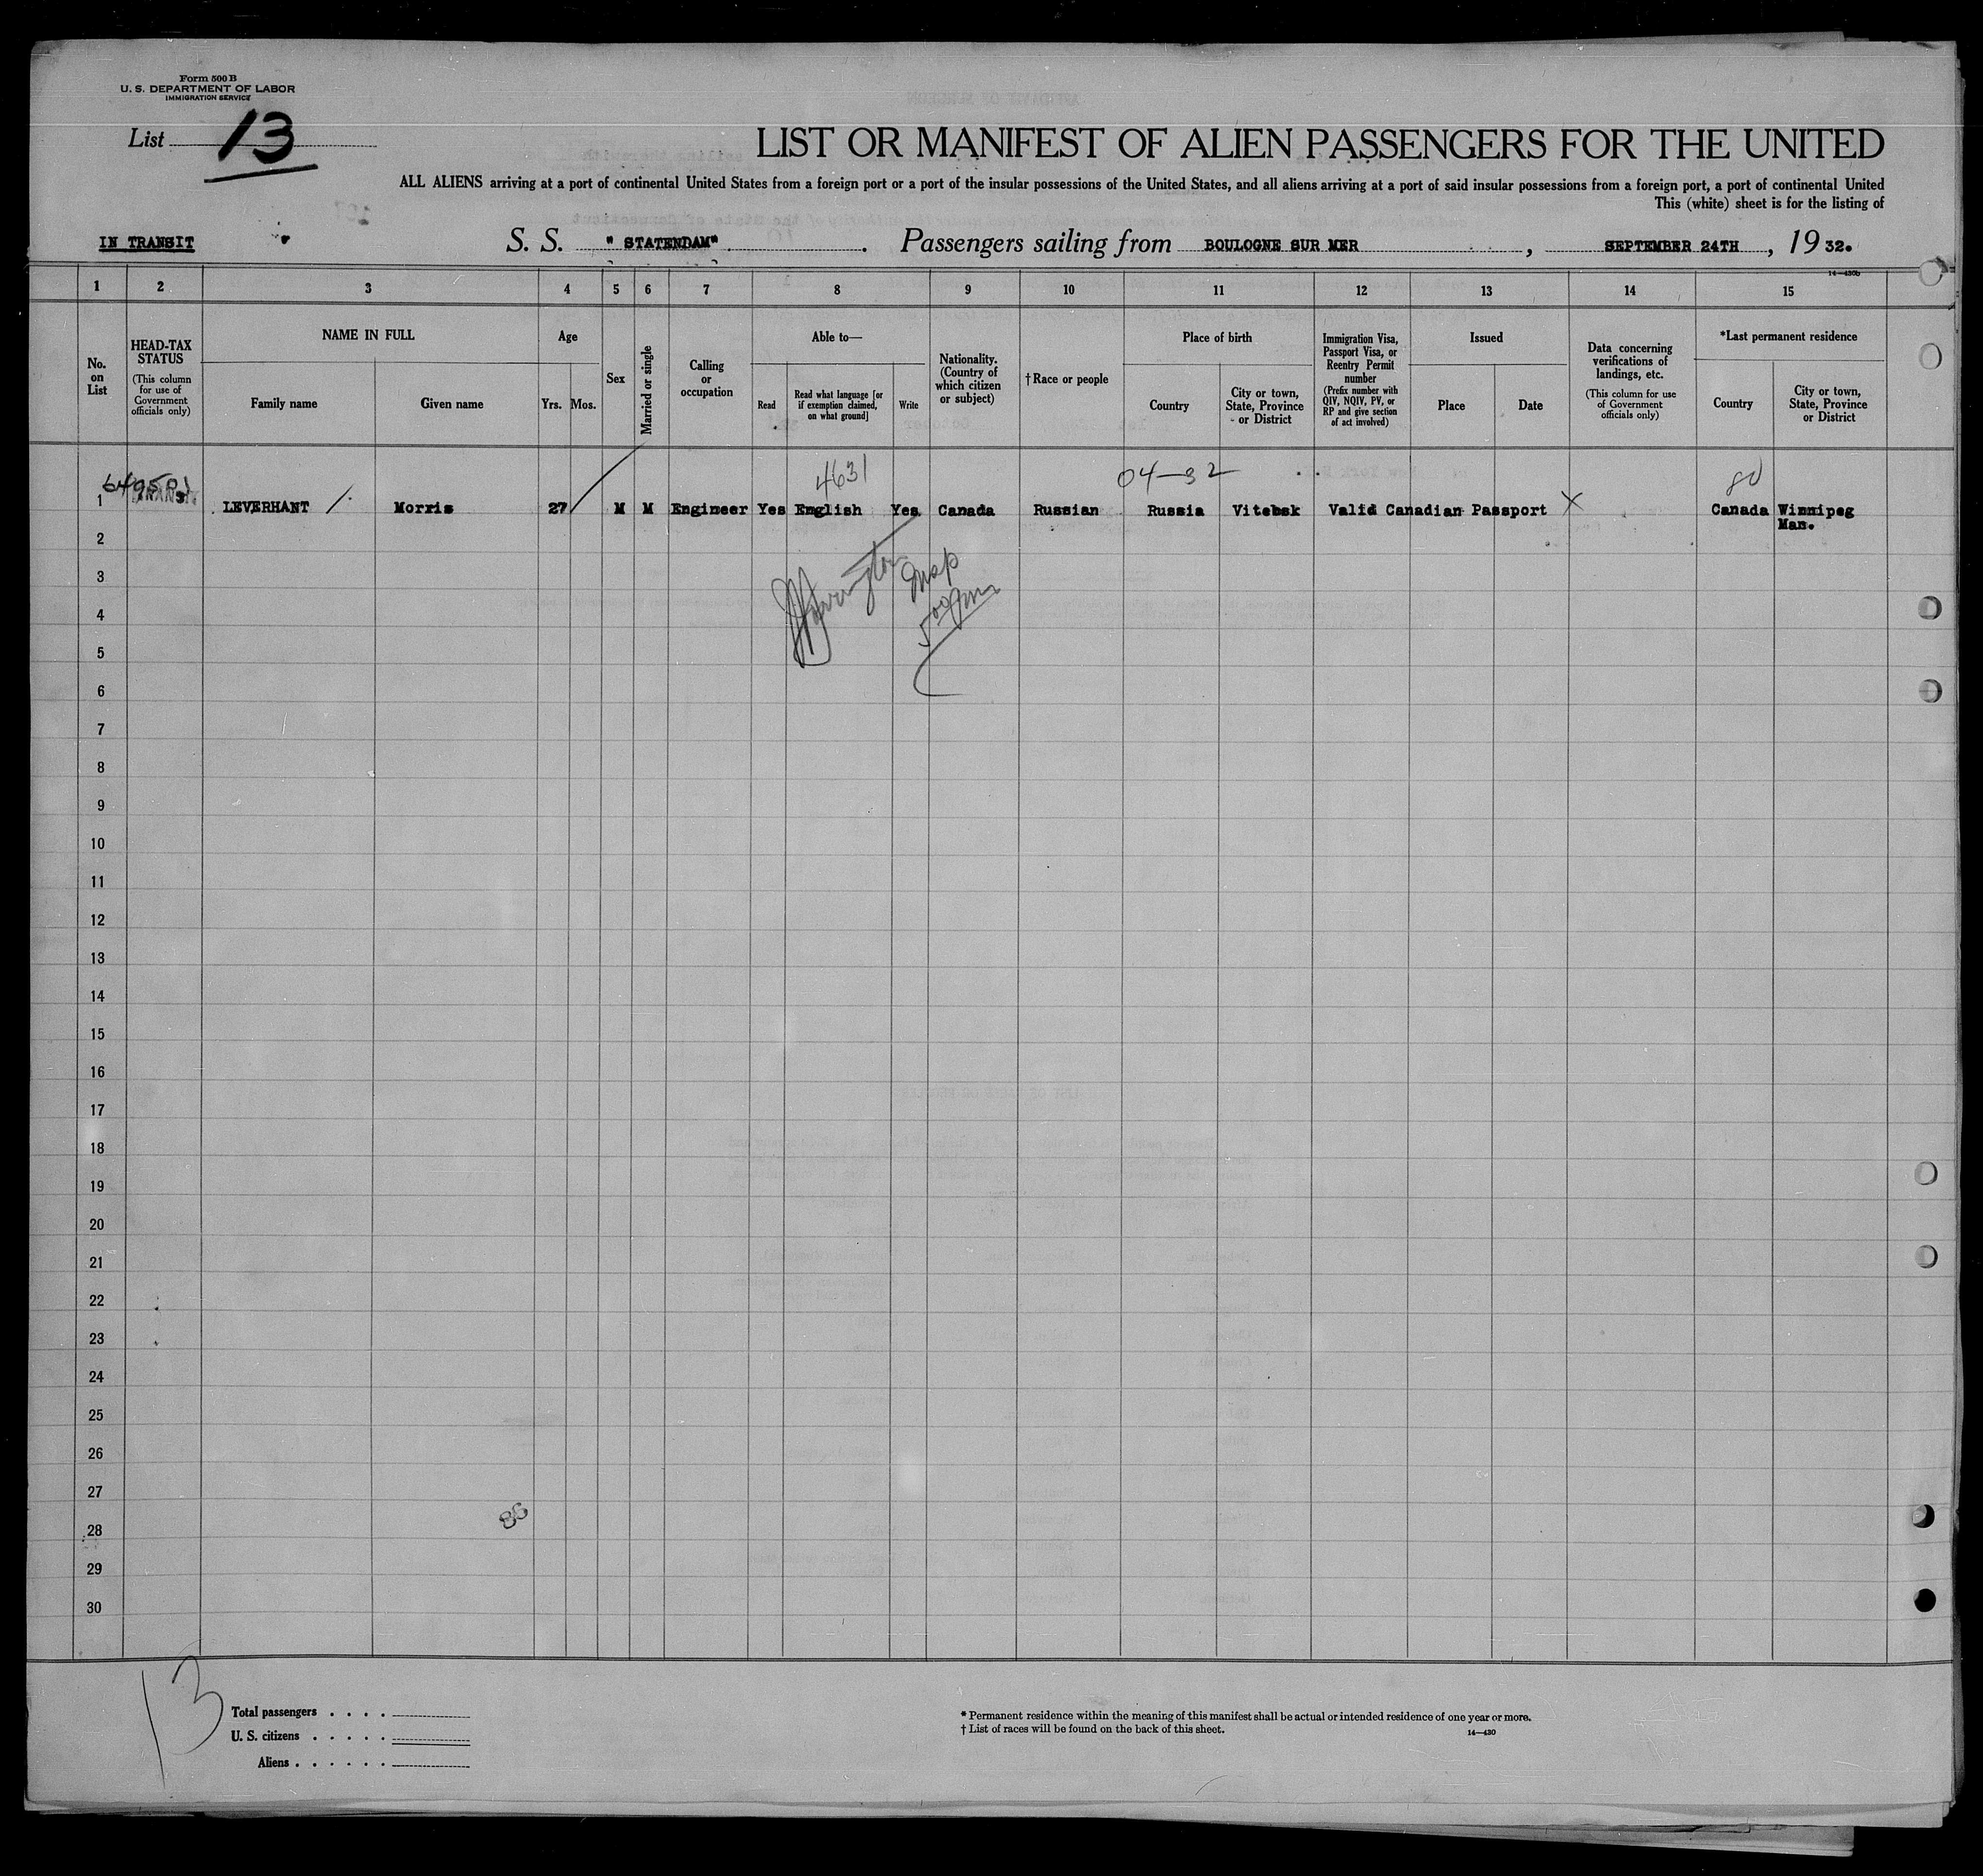 Form 500 B
U. S. DEPARTMENT OF LABOR
IMMIGRATION SERVICE
List 13
LIST OR MANIFEST OF ALIEN PASSENGERS FOR THE UNITED
ALL ALIENS arriving at a port of continental United States from a foreign port or a port of the insular possessions of the United States, and all aliens arriving at a port of said insular possessions from a foreign port, a port of continental United
This (white) sheet is for the listing of
IN TRANSIT S. S. "STATENDAM" Passengers sailing from BOULOGNE SUR MER, SEPTEMBER 24TH, 1932.
14—430b
1 2 3 4 5 6 7 8 9 10 11 12 13 14 15
No. on List
HEAD-TAX STATUS (This column for use of Government officials only)
NAME IN FULL
Family name
Given name
Age
Yrs.
Mos.
Sex
Married or single
Calling or occupation
Able to—
Read
Read what language [or if exemption claimed, on what ground]
Write
Nationality. (Country of which citizen or subject)
†Race or people
Place of birth
Country
City or town, State, Province or District
Immigration Visa, Passport Visa, or Reentry Permit number (Prefix number with QIV, NQIV, PV, or RP and give section of act involved)
Issued
Place
Date
Data concerning verifications of landings, etc. (This column for use of Government officials only)
*Last permanent residence
Country
City or town, State, Province or District
4631 04—32 80
1 LEVERHANT Morris 27 M M Engineer Yes English Yes Canada Russian Russia Vitebsk Valid Canadian Passport X Canada Winnipeg
Man.
2
3
4
5
6
7
8
9
10
11
12
13
14
15
16
17
18
19
20
21
22
23
24
25
26
27
28
29
30
13
Total passengers . . . .
U. S. citizens . . . . .
Aliens . . . . . .
* Permanent residence within the meaning of this manifest shall be actual or intended residence of one year or more.
† List of races will be found on the back of this sheet.
14—430